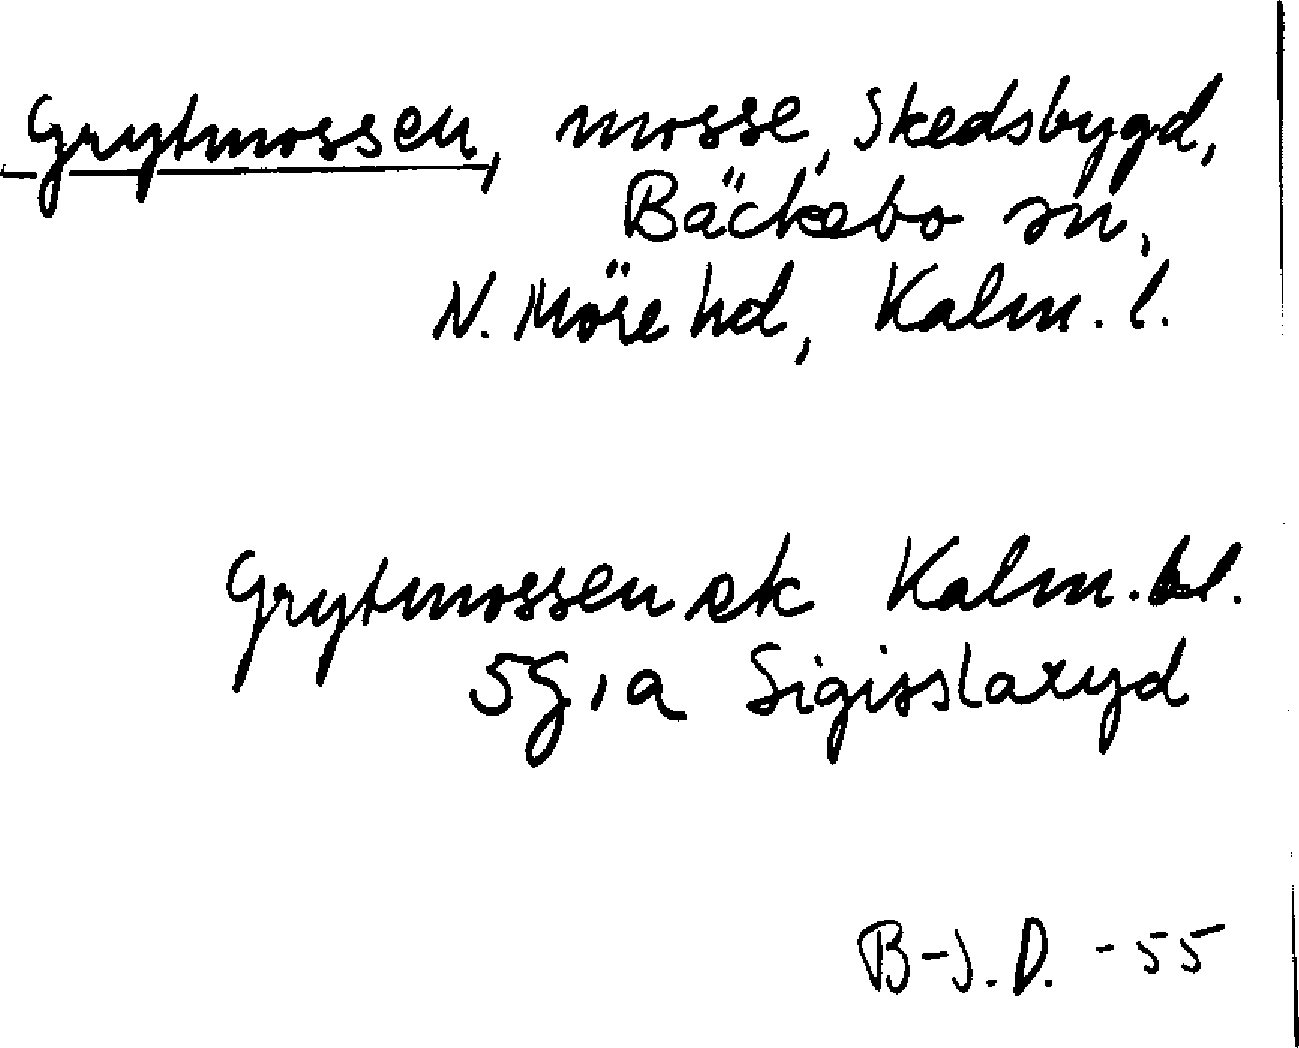 Grytmossen, mosse, Skedsbygd,
Bäckebo sn,
N. Möre hd, Kalm. l.
Grytmossen ek Kalm. bl.
5G, a Sigisslaryd
B-J. D. -55